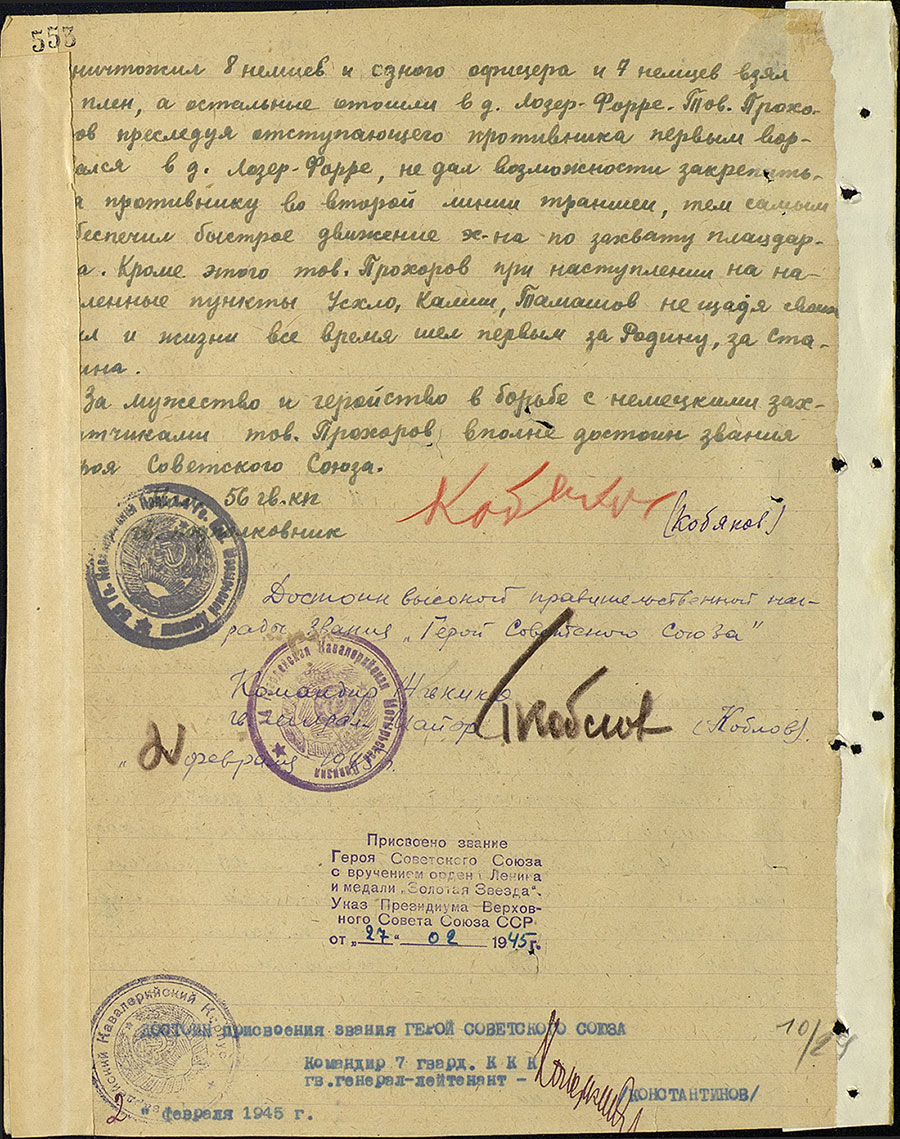 553
ничтожил 8 немцев и одного офицера и 7 немцев взял
плен, а остальные отошли в д. Лозер-Форре. Тов. Прохо-
ов преследуя отступающего противника первым вор-
ался в д. Лозер-Форре, не дал возможности закрепить-
а противнику во второй линии траншеи, тем самым
беспечил быстрое движение э-на по захвату плацдар-
а. Кроме этого тов. Прохоров при наступлении на на-
ленные пункты Усхло, Калиш, Тамашов не щадя своих
ил и жизни все время шел первым за Родину, за Ста-
ина.
За мужество и геройство в борьбе с немецкими зах-
атчиками тов. Прохоров вполне достоин звания
роя Советского Союза.
56 гв. кп
подполковник
Кобяков
(Кобяков)
Достоин высокой правительственной наг-
рады звания „Герой Советского Союза"
Командир
майор
Коблов
(Коблов)
февраля 1945 г.
Кавалерийская
Дивизия
Присвоено звание
Героя Советского Союза
с вручением ордена Ленина
и медали „Золотая Звезда".
Указ Президиума Верхов-
ного Совета Союза ССР
от „27" 02 1945 г.
Кавалерийский Корпус
ДОСТОИН присвоения звания ГЕРОЙ СОВЕТСКОГО СОЮЗА
Командир 7 гвард. К К К
гв.генерал-лейтенант -
/КОНСТАНТИНОВ/
2 " февраля 1945 г.